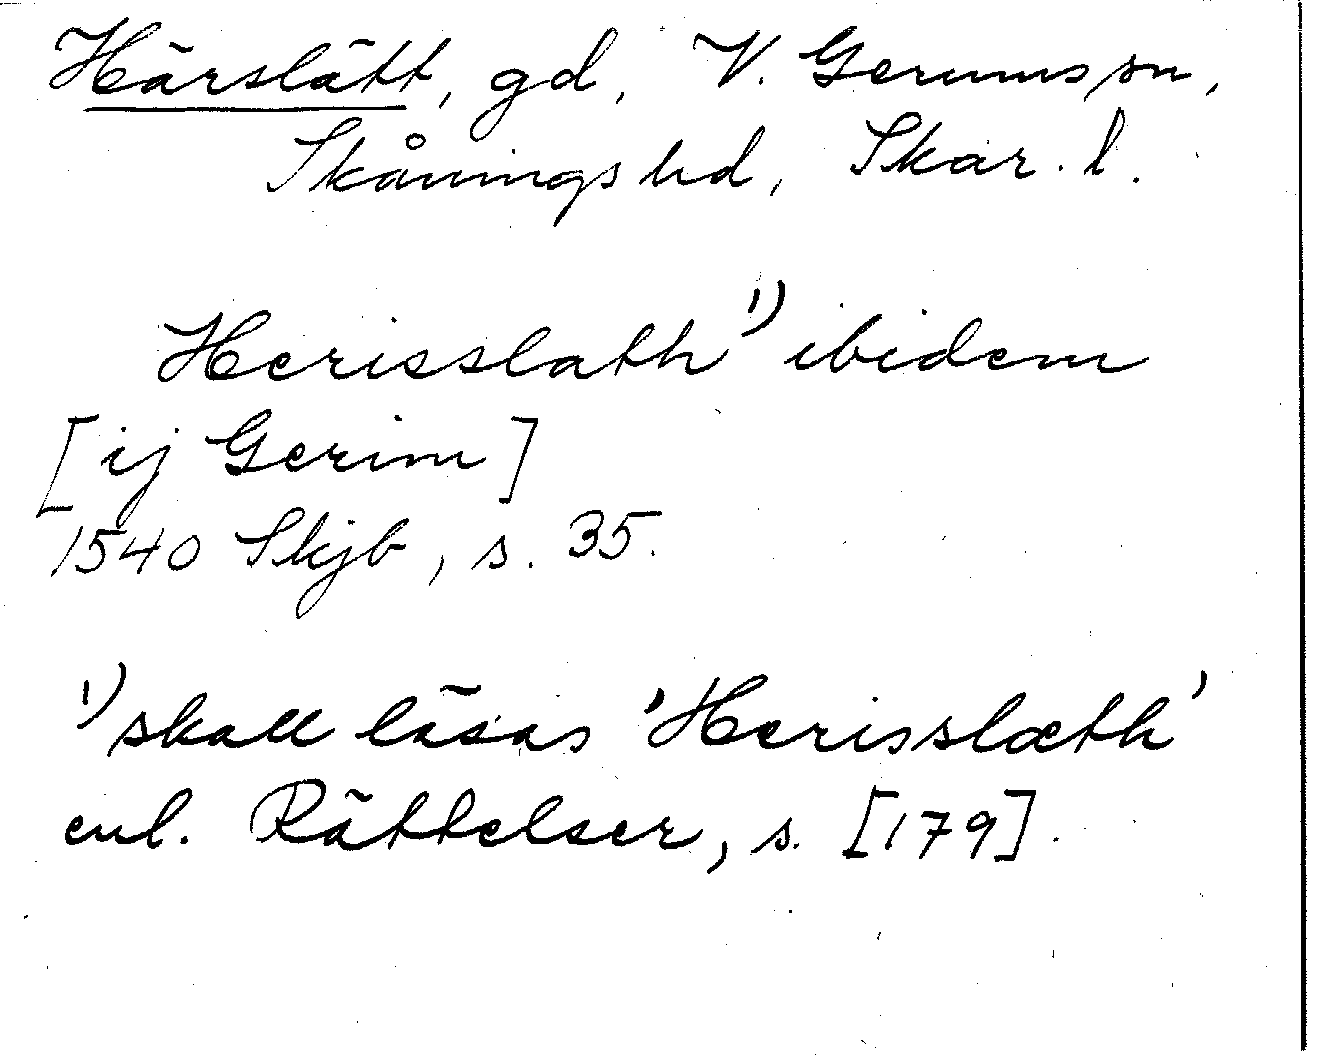 Härslätt, gd, V. Gerums sn,
Skånings hd, Skar. l.
Herisslath ¹) ibidem
[ij Gerim]
1540 Skjb, s. 35.
¹) skall läsas 'Herisslæth'
enl. Rättelser, s. [179].